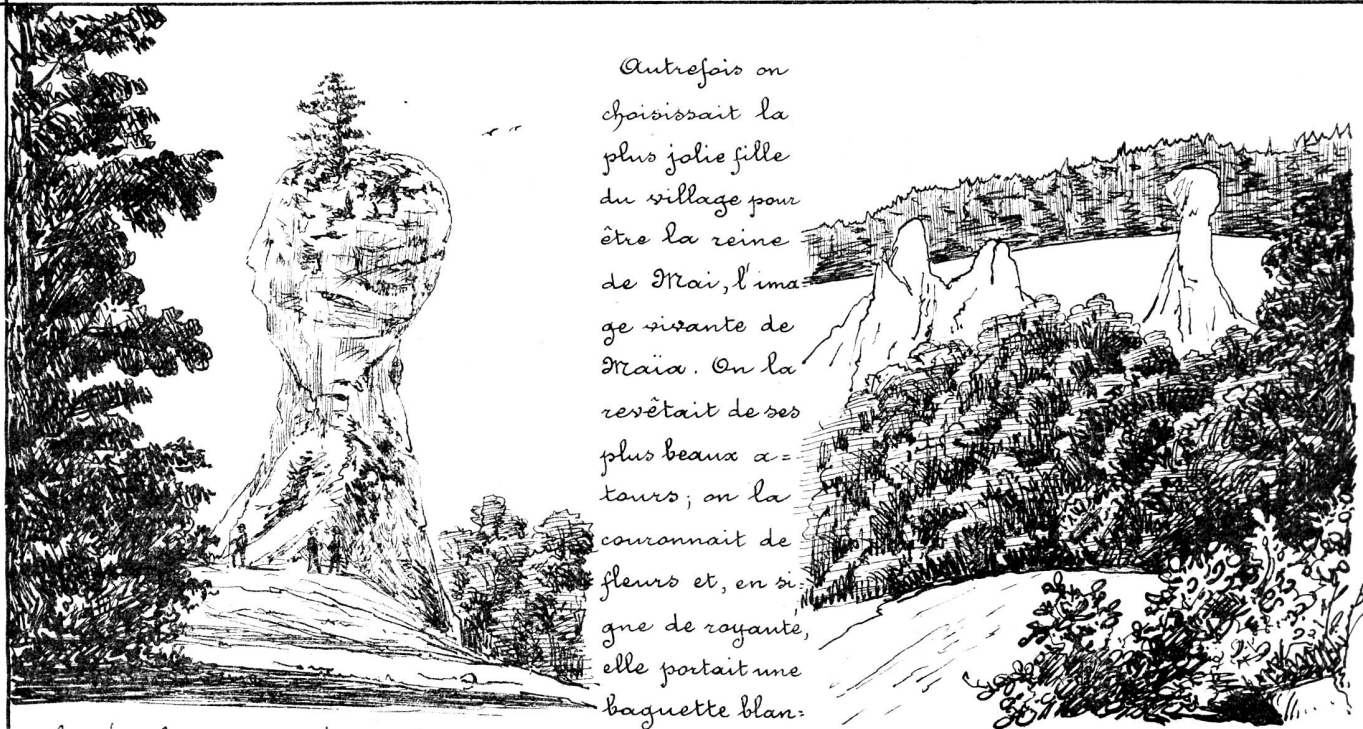 Autrefois on
choisissait la
plus jolie fille
du village pour
être la reine
de Mai, l'ima=
ge vivante de
Maïa. On la
revêtait de ses
plus beaux a=
tours; on la
couronnait de
fleurs et, en si=
gne de royauté,
elle portait une
baguette blan=